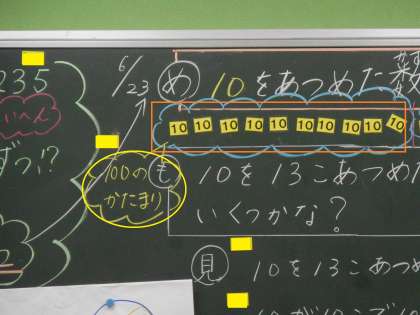 235
6/23
め 10をあつめた数
10 10 10 10 10 10 10 10 10 10
ずつ!?
100の
かたまり
も 10を13こあつめた
いくつかな?
見 10を13こあつめ